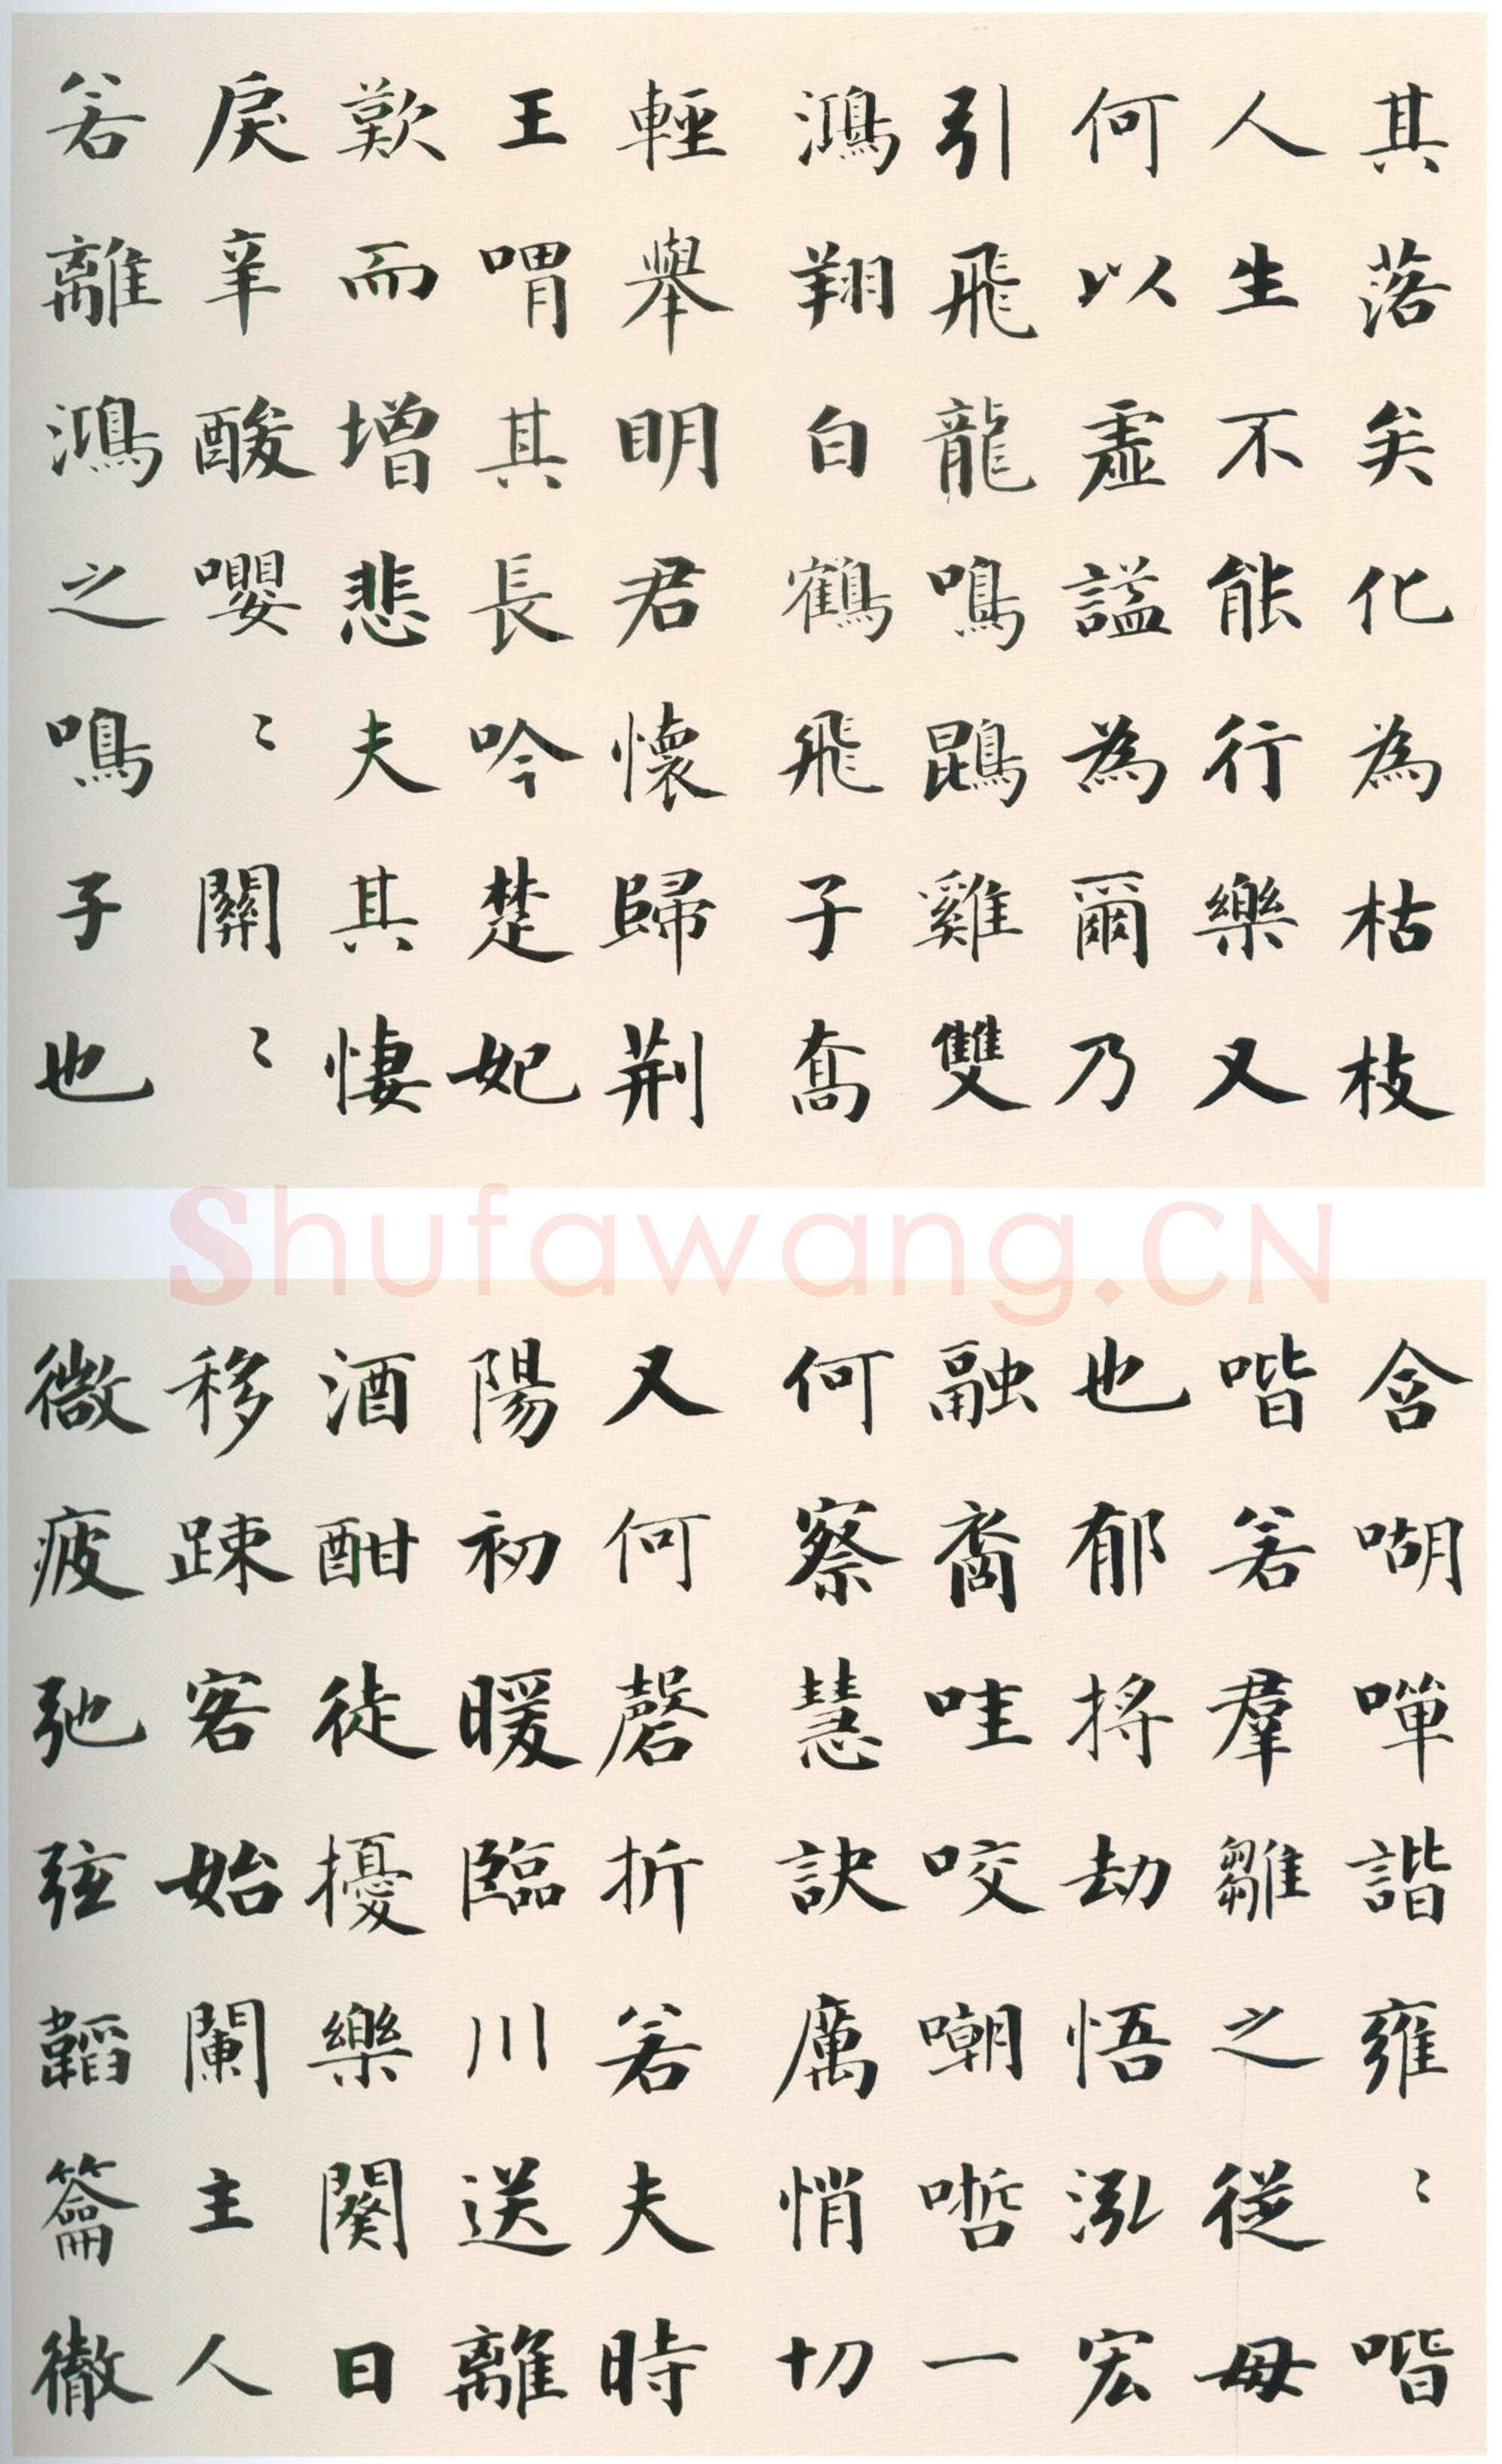 其落矣化為枯枝
人生不能行樂又
何以虛謚為爾乃
引飛龍鳴鵾雞雙
鴻翔白鶴飛子喬
輕舉明君懷歸荊
王喟其長吟楚妃
歎而增悲夫其悽
戾辛酸嚶〻關〻
若離鴻之鳴子也
Shufawang.CN
含㗅嘽諧雍〻喈
喈若羣雛之從母
也郁捋劫悟泓宏
融裔哇咬嘲哳一
何察慧訣厲悄切
又何磬折若夫時
陽初暖臨川送離
酒酣徒擾樂闋日
移踈客始闌主人
微疲弛弦韜籥徹